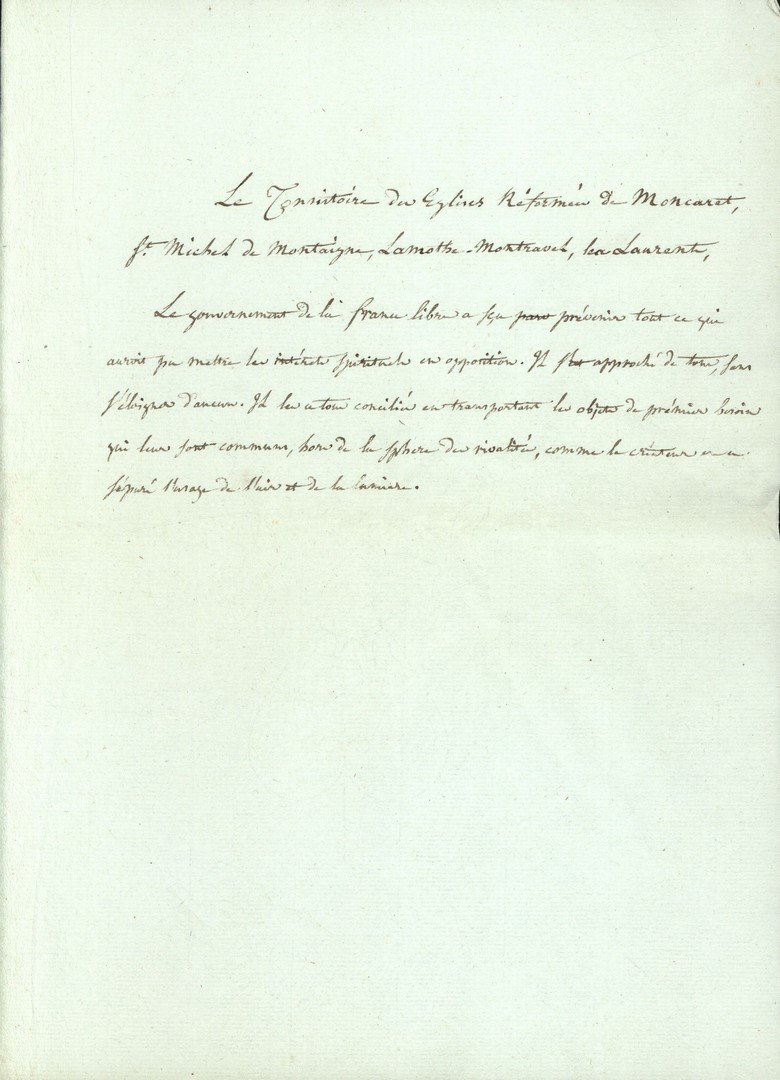 Le Consistoire des Eglises Réformées de Moncaret,
St. Michel de Montaigne, Lamothe-Montravel, les Laurents,
Le gouvernement de la france libre a sçu prévenir tout ce qui
auroit pu mettre les intérêts spirituels en opposition. Il s'est approché de tous, sans
s'éloigner d'aucun. Il les a tous conciliés en transportant les objets de prémier besoin
qui leur sont communs, hors de la sphere des rivalités, comme le créateur en a
séparé l'usage de l'air et de la lumiere.